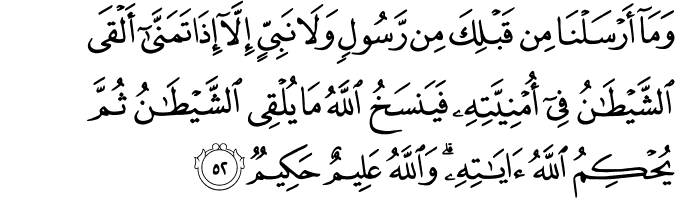 وَمَآ أَرْسَلْنَا مِن قَبْلِكَ مِن رَّسُولٍ وَلَا نَبِيٍّ إِلَّآ إِذَا تَمَنَّىٰٓ أَلْقَى
ٱلشَّيْطَـٰنُ فِىٓ أُمْنِيَّتِهِۦ فَيَنسَخُ ٱللَّهُ مَا يُلْقِى ٱلشَّيْطَـٰنُ ثُمَّ
يُحْكِمُ ٱللَّهُ ءَايَـٰتِهِۦ ۗ وَٱللَّهُ عَلِيمٌ حَكِيمٌ ٥٢